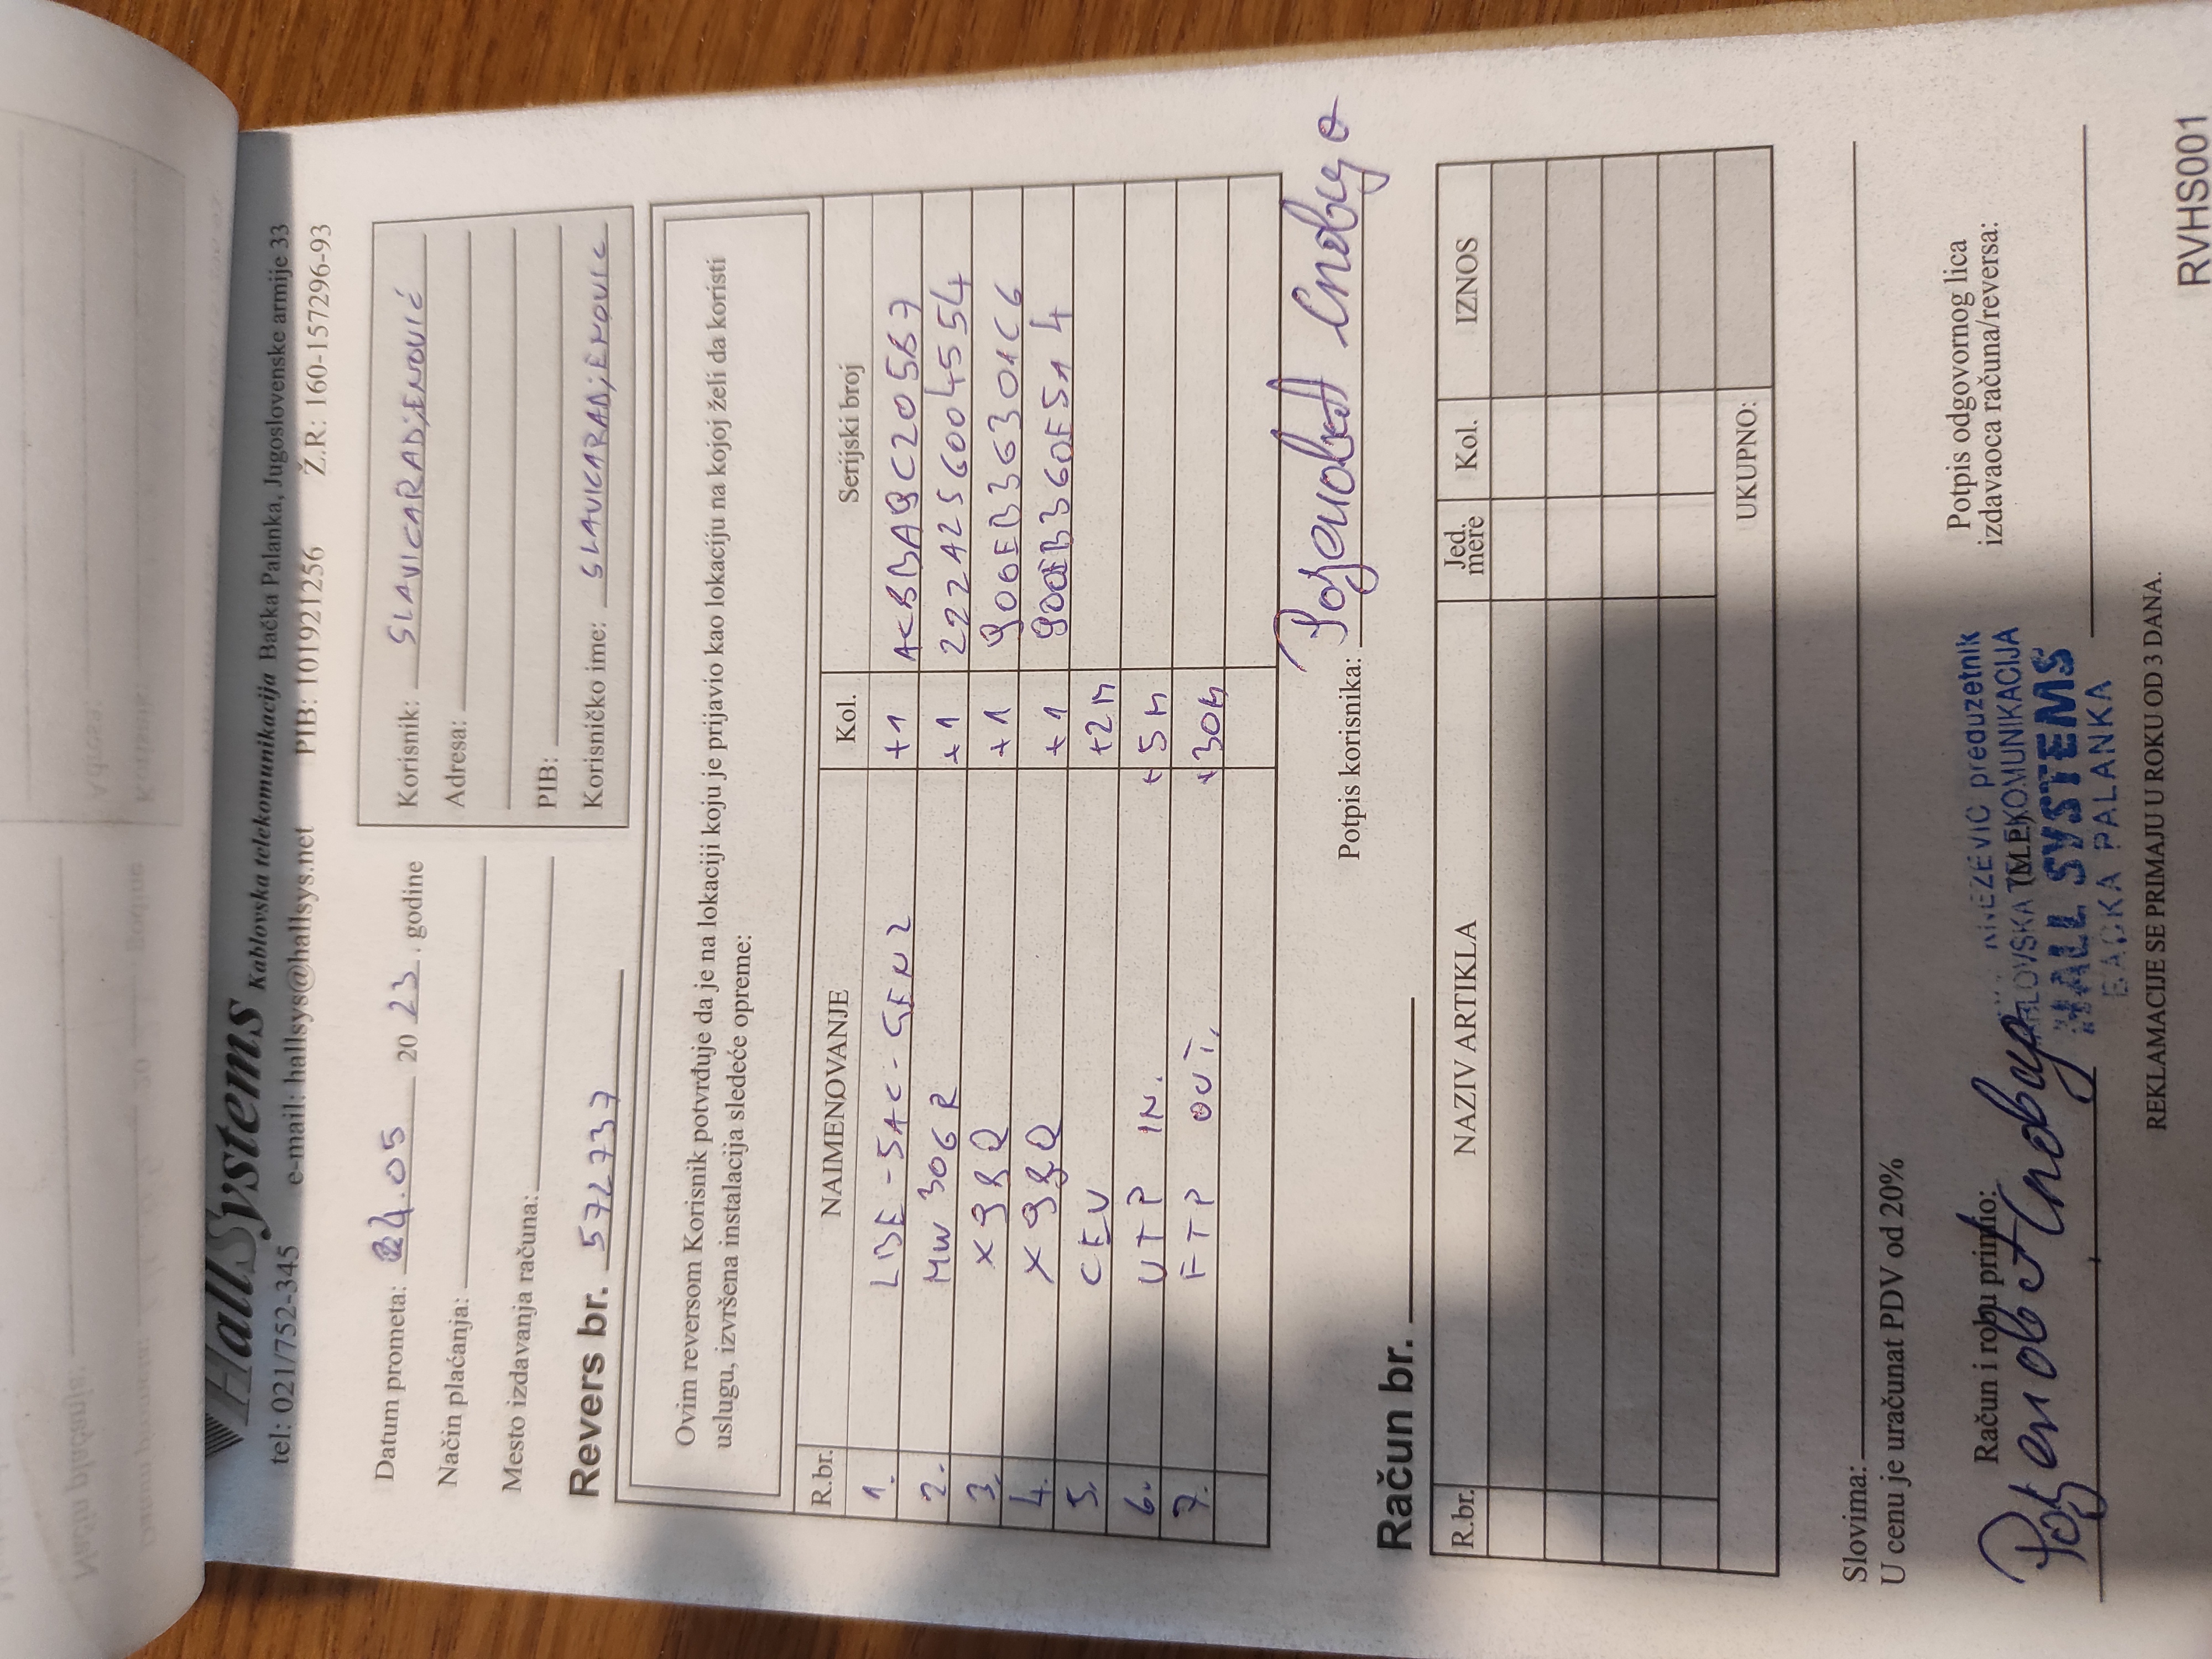 HallSystems Kablovska telekomunikacija Bačka Palanka, Jugoslovenske armije 33
tel: 021/752-345 e-mail: hallsys@hallsys.net PIB: 101921256 Ž.R: 160-157296-93
Datum prometa: 24.05 20 23. godine
Način plaćanja:
Mesto izdavanja računa:
Revers br. 572737
Korisnik: SLAVICARADJENOVIĆ
Adresa:
PIB:
Korisničko ime: SLAVICARADJENOVIC
Ovim reversom Korisnik potvrđuje da je na lokaciji koju je prijavio kao lokaciju na kojoj želi da koristi
uslugu, izvršena instalacija sledeće opreme:
R.br. NAIMENOVANJE Kol. Serijski broj
1. LBE-5AC-GEN2 +1 AC8BA9C205B7
2. MW306R +1 222A256004554
3. X98Q +1 900EB36301C6
4. X98Q +1 900EB360E514
5. CEV +2M
6. UTP IN. +5M
7. FTP OUT. +30M
Potpis korisnika: Рађеновић Славица
Račun br.
R.br. NAZIV ARTIKLA Jed. mere Kol. IZNOS
UKUPNO:
Slovima:
U cenu je uračunat PDV od 20%
Račun i robu primio:
Potpis odgovornog lica
izdavaoca računa/reversa:
preduzetnik
TELEKOMUNIKACIJA
HALL SYSTEMS
BAČKA PALANKA
REKLAMACIJE SE PRIMAJU U ROKU OD 3 DANA.
RVHS001